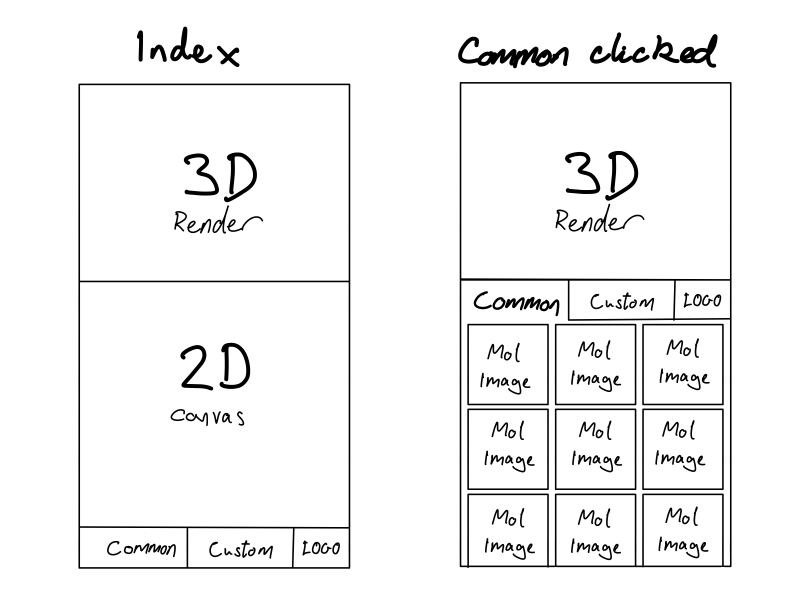 Index
Common clicked
3D
Render
2D
Canvas
Common Custom LOGO
3D
Render
Common Custom LOGO
Mol Image
Mol Image
Mol Image
Mol Image
Mol Image
Mol Image
Mol Image
Mol Image
Mol Image